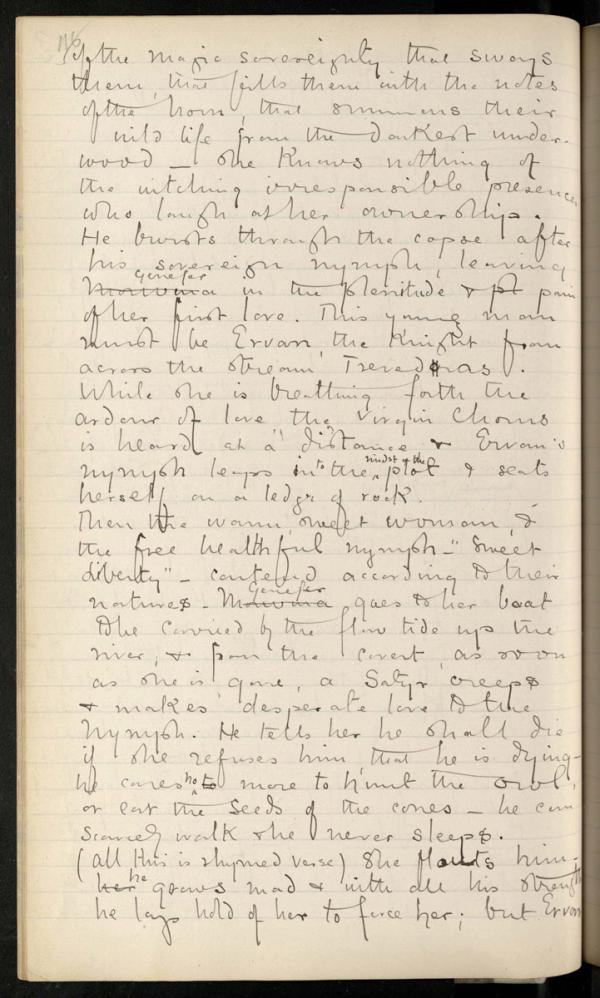 of the magic sovereignty that sways
them, that fills them with the notes
of the horn, that summons their
wild life from the darkest under-
wood — she knows nothing of
the witching irresponsible presences
who laugh at her ownership.
He bursts through the copse after
his sovereign nymph, leaving
Genefer
in the plenitude & pt pain
of her first love. This young man
must be Ervan, the Knight from
across the stream Trevedras.
While she is breathing forth the
ardour of love, the Virgin Chorus
is heard at a distance & Ervan's
nymph leaps into the midst of the plot & seats
herself on a ledge of rock.
Then the warm, sweet woman, &
the free healthful nymph — "Sweet
Liberty" — contend according to their
natures. Genefer goes to her boat
to be carried by the flow tide up the
river, & from the covert, as soon
as she is gone, a Satyr creeps
& makes desperate love to the
Nymph. He tells her he shall die
if she refuses him, that he is dying —
he cares no more to hunt the owl,
or eat the seeds of the cones — he can
scarcely walk & he never sleeps.
(All this is rhymed verse) She flouts him —
her he grows mad & with all his strength
he lays hold of her to force her; but Ervan